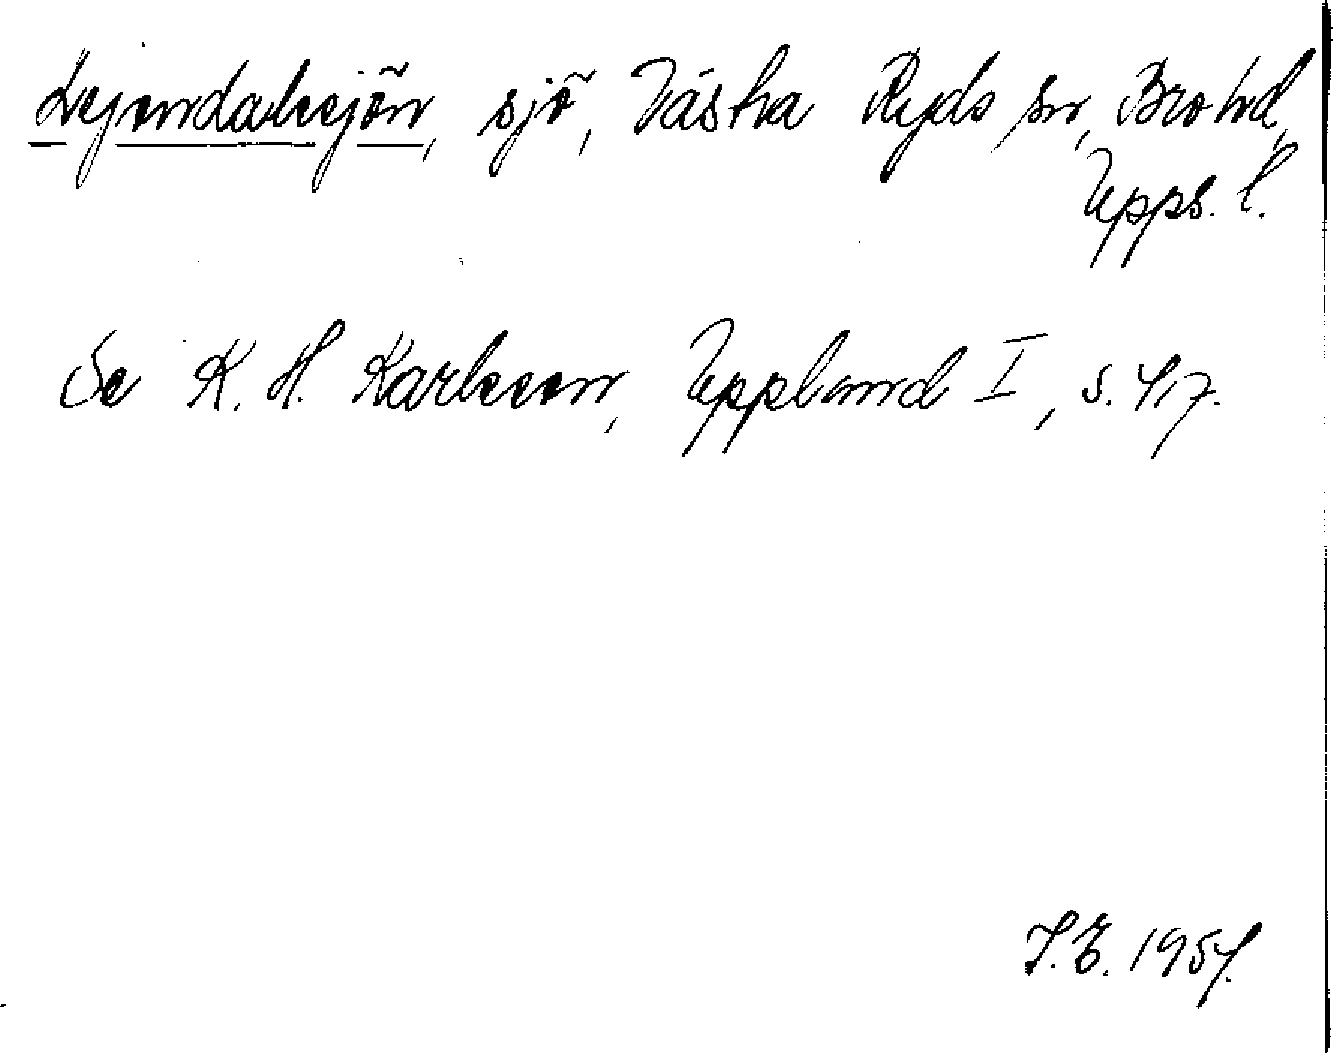 Lejondalssjön, sjö, Västra Ryds sn, Bro hd,
Upps. l.
Se K. H. Karlsson, Uppland I, s. 417.
I. E. 1954.